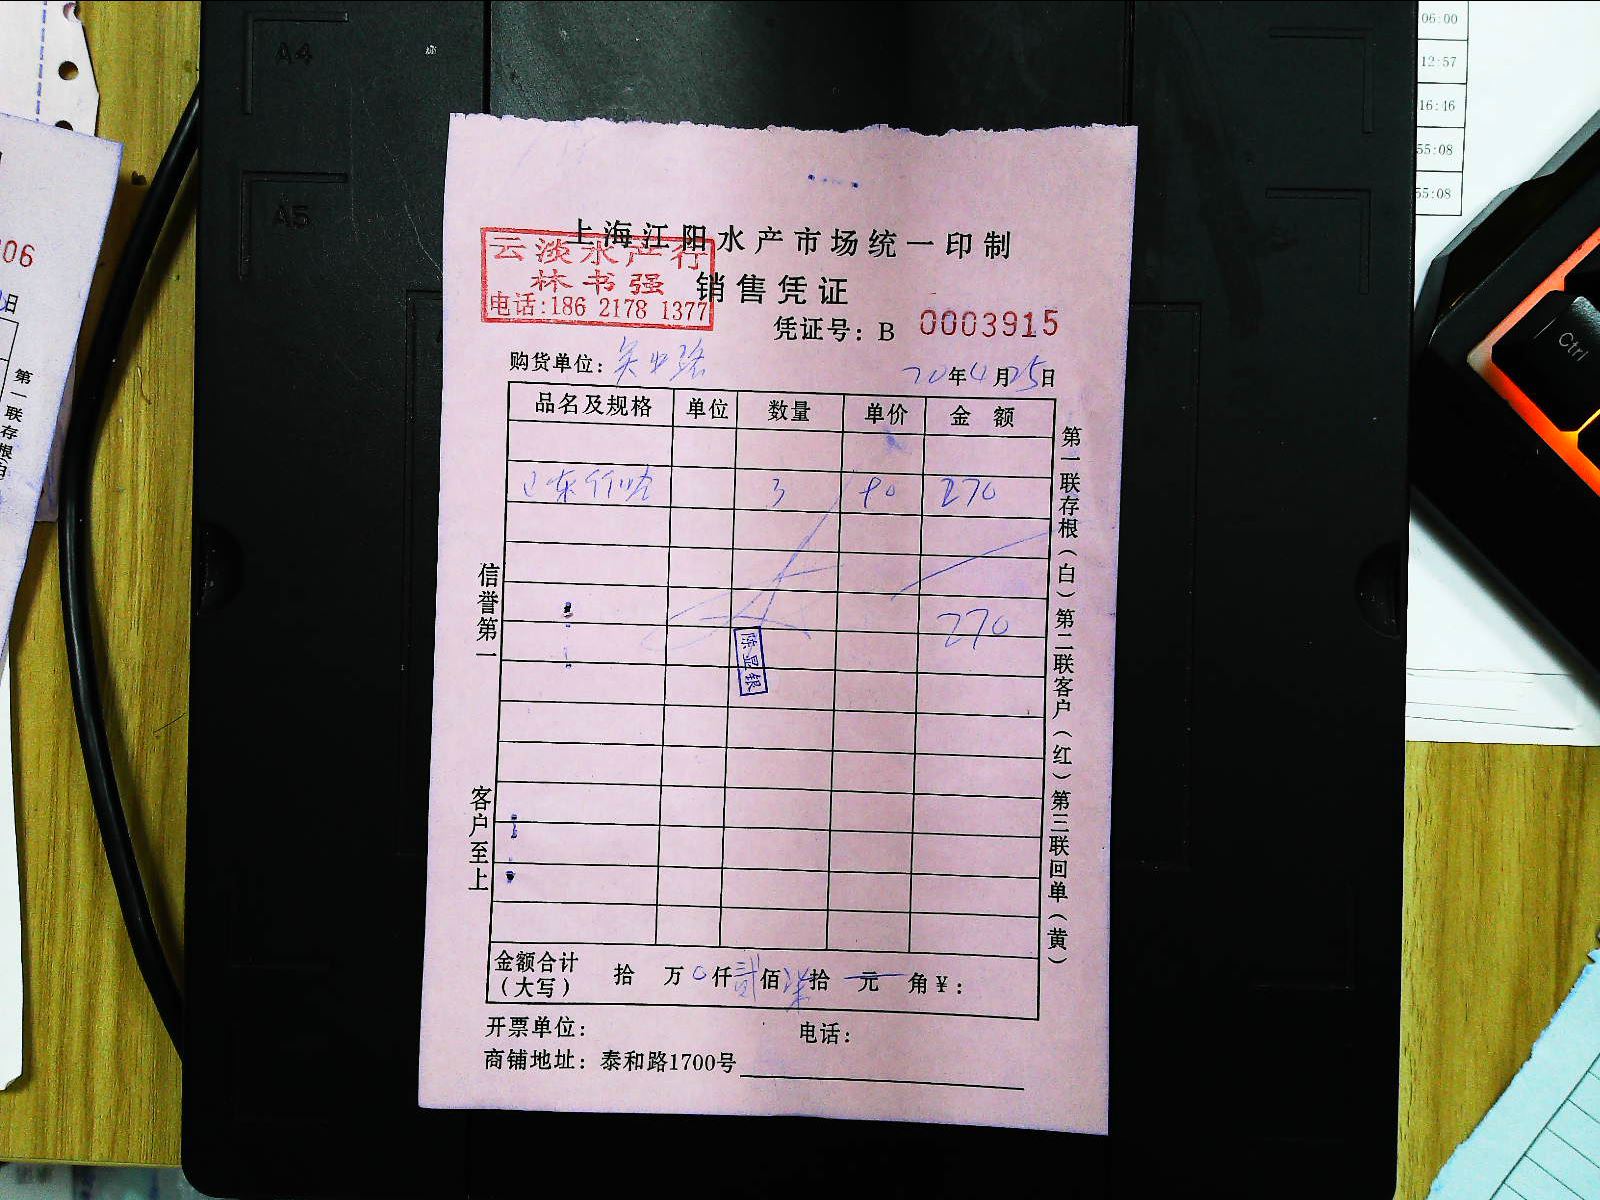 上海江阳水产市场统一印制
云淡水产行
林书强
电话:186 2178 1377
销售凭证
凭证号: B 0003915
购货单位:
20年4月25日
品名及规格 单位 数量 单价 金额
3 90 270
270
陈显银
信誉第一
客户至上
第一联存根(白)第二联客户(红)第三联回单(黄)
金额合计(大写) 拾 万0仟贰佰柒拾 元 角¥:
开票单位: 电话:
商铺地址: 泰和路1700号
A4
A5
06
日
第一联存根(白
06:00
12:57
16:46
55:08
55:08
Ctrl